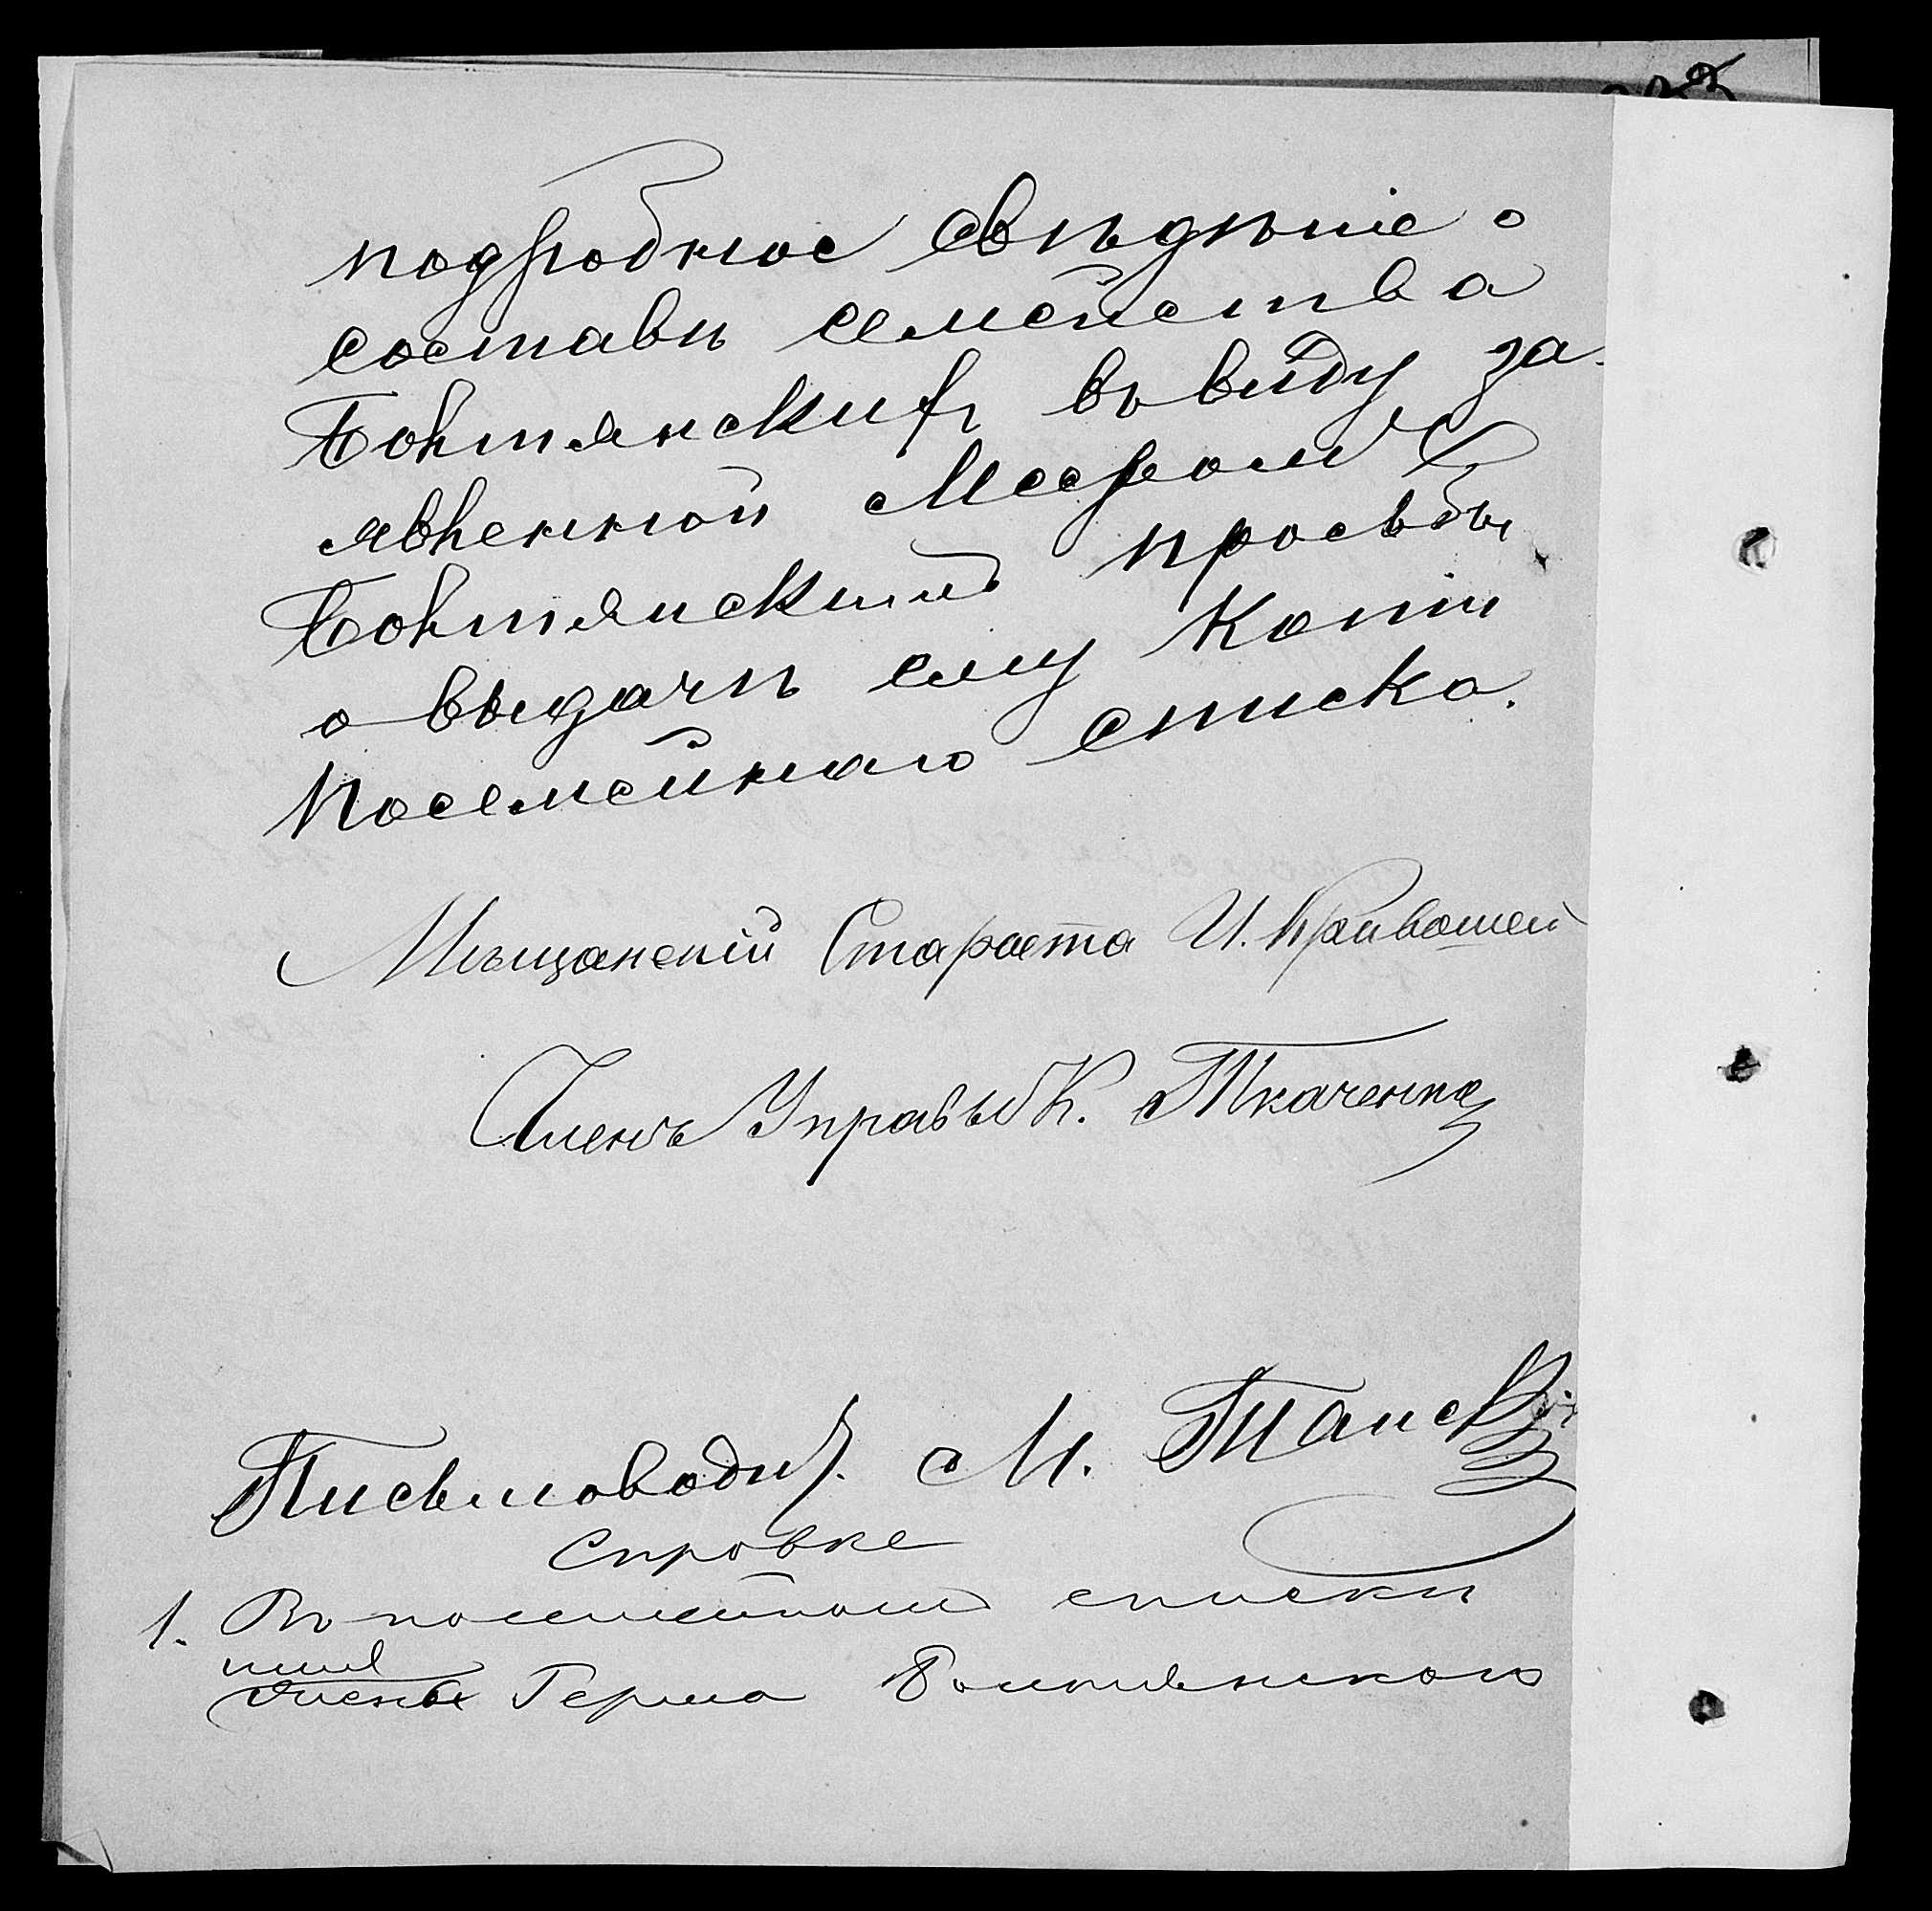 подробное свѣдѣніе о
составѣ семейства
Болтянскихъ въ виду за-
явленной Меером
Болтянскимъ просьбы
о выдачѣ ему копіи
посемейнаго списка.
Мѣщанскій Староста И. Кривошей
Членъ Управы К. Ткаченко
Письмоводит. М.
Справка
1. Въ посемейномъ списки
Герша Болтянскаго